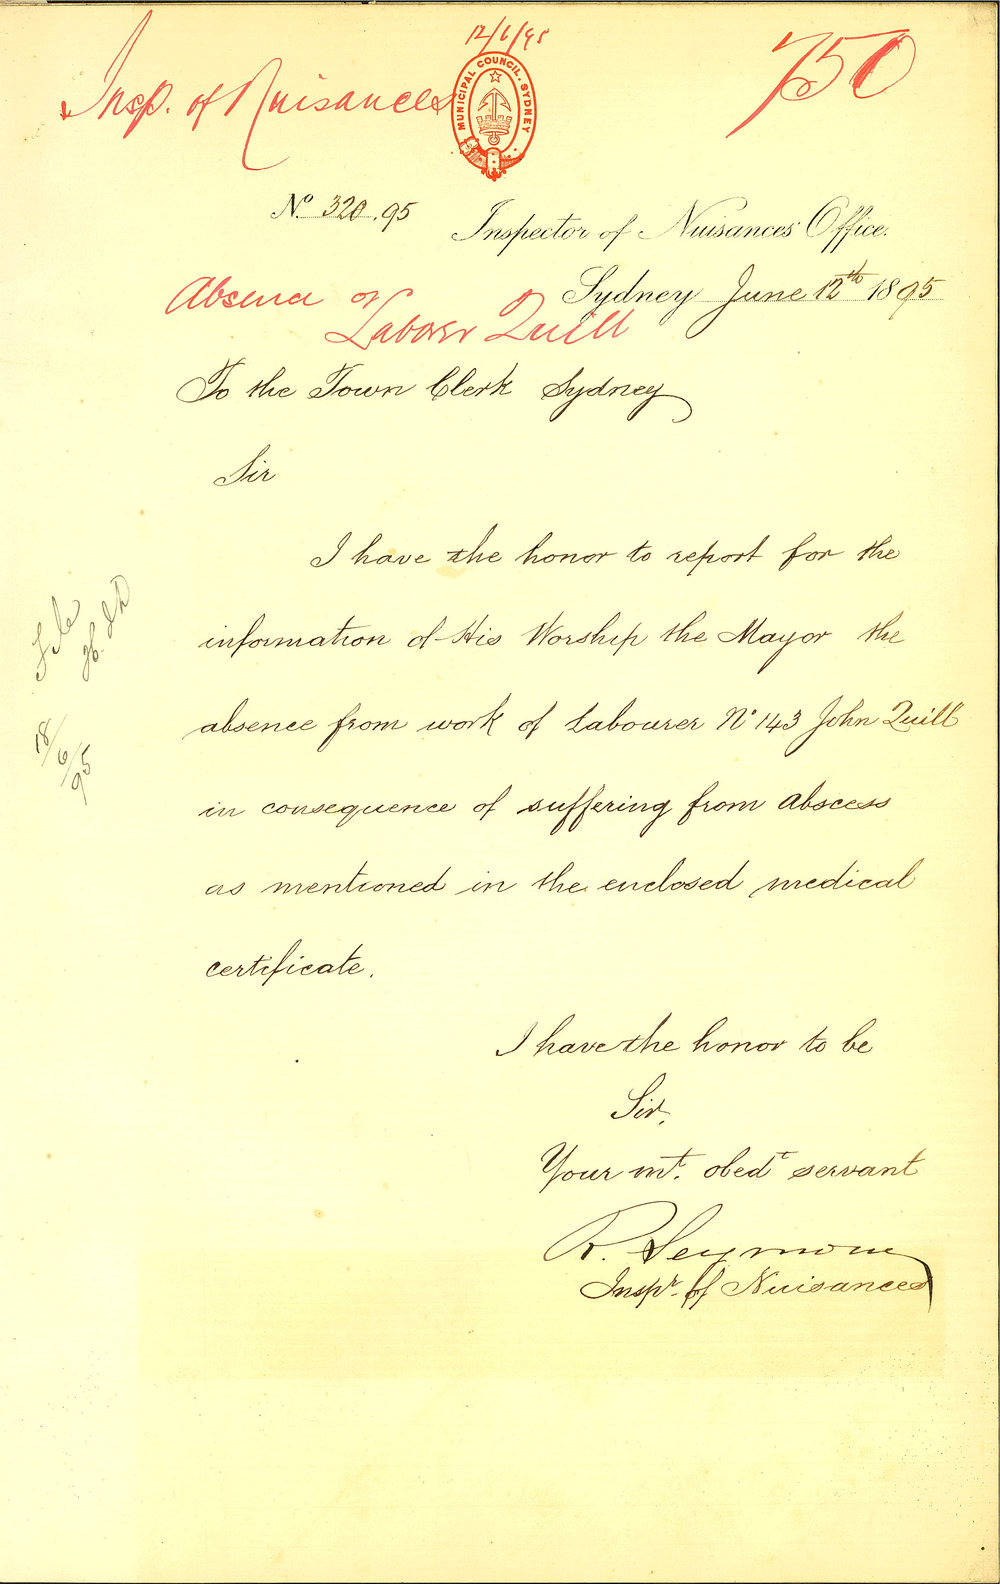 12/6/95
Insp. of Nuisances
750
MUNICIPAL COUNCIL. SYDNEY
No. 320.95
Inspector of Nuisances' Office.
Sydney June 12th 1895
Absence of
Laborer Quill
To the Town Clerk Sydney
Sir
I have the honor to report for the
information of His Worship the Mayor the
absence from work of Labourer No 143 John Quill
in consequence of suffering from Abscess
as mentioned in the enclosed medical
certificate.
File
18/6/95
I have the honor to be
Sir,
Your mt. obedt servant
R. Seymour
Inspr. of Nuisances